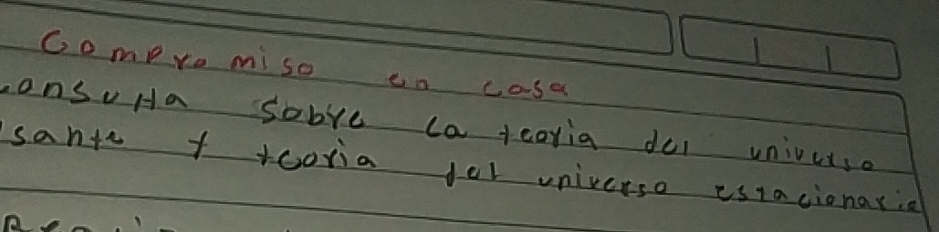 Compromiso en casa
consulta sobre la teoria del universo
sante y teoria del universo estacionario